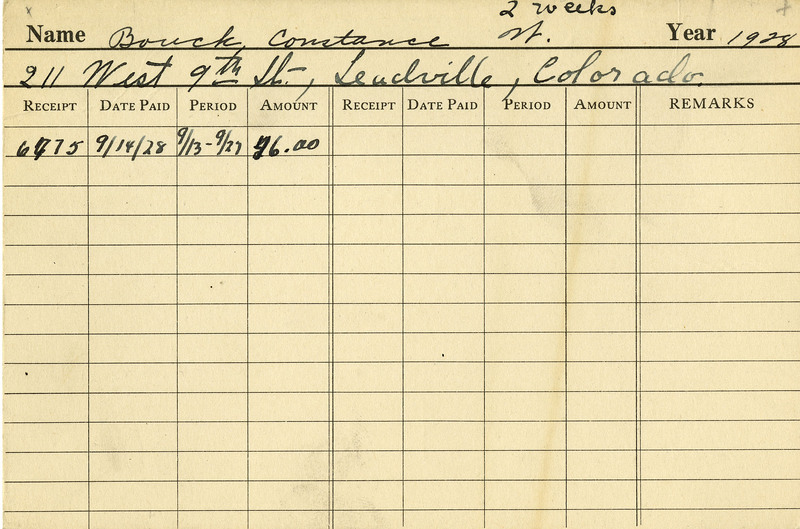 2 weeks
Name Bouck, Constance St. Year 1928
211 West 9th St., Leadville, Colorado.
RECEIPT DATE PAID PERIOD AMOUNT RECEIPT DATE PAID PERIOD AMOUNT REMARKS
9/14/28 9/13-9/27